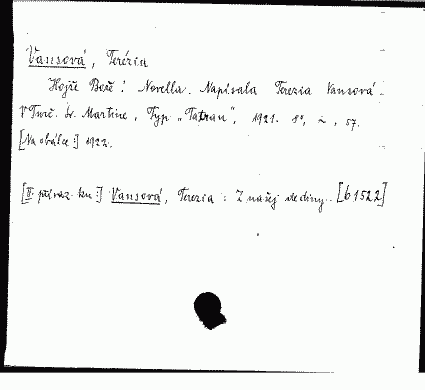 Vansová, Terézia
Hojže Bože! Novella. Napísala Terezia Vansová.
V Turč. Sv. Martine, Typ. „Tatran", 1921. 8°, 57.
[Na obálke:] 1922.
[II. přívaz. ku:] Vansová, Terezia: Z našej dediny. [6 1522]